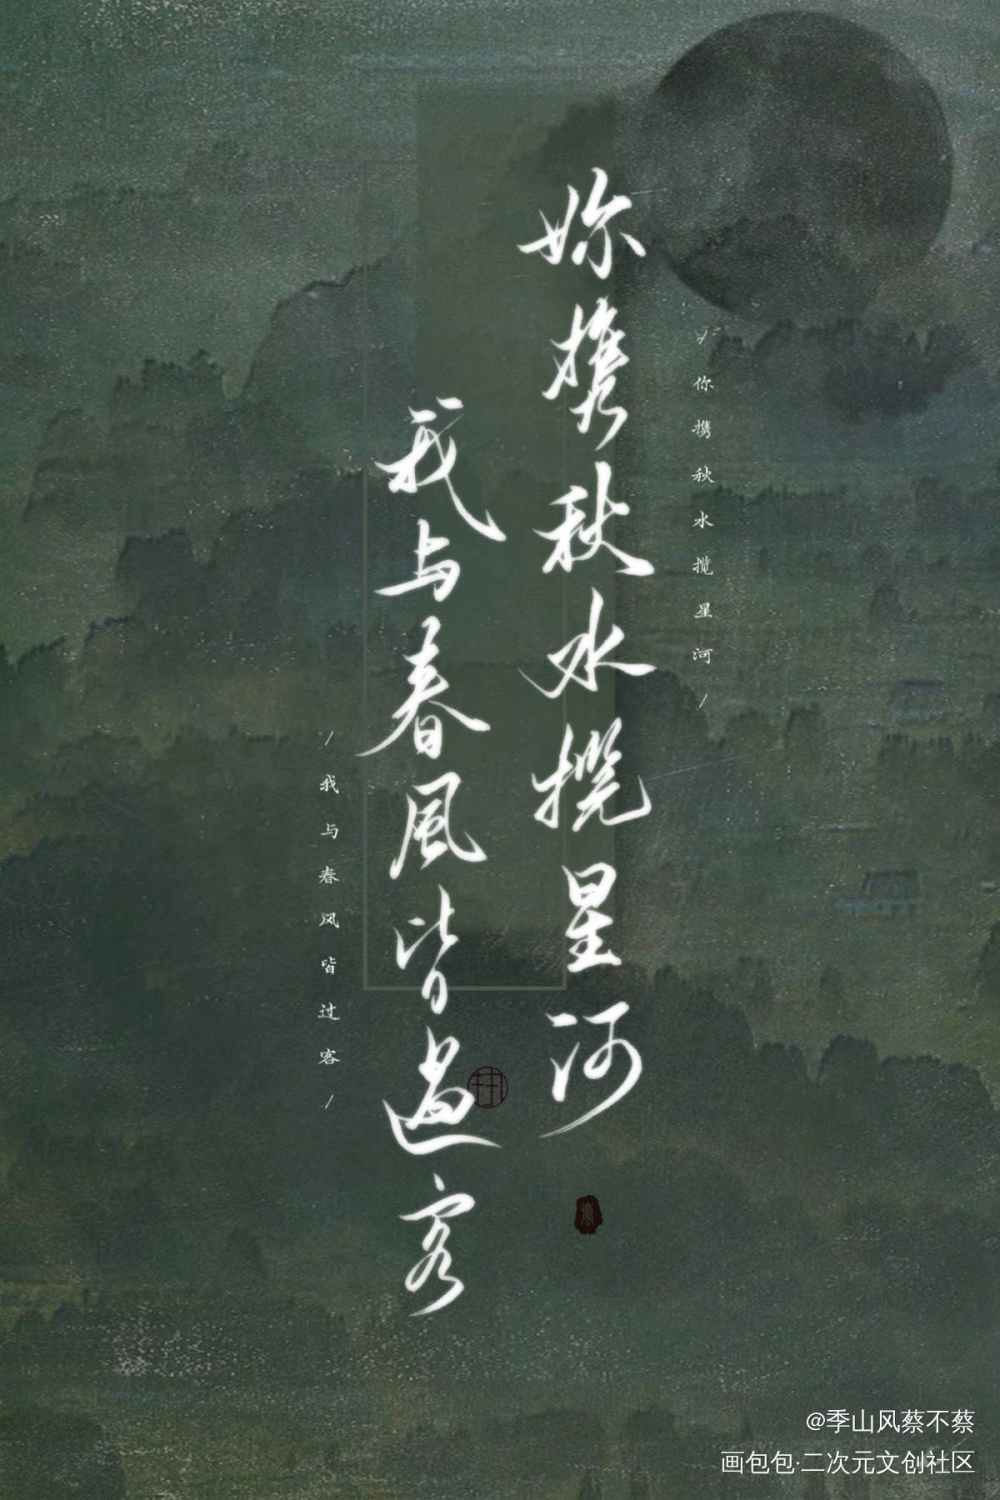 /你携秋水揽星河/
妳携秋水揽星河
我与春風皆過客
/我与春风皆过客/
@季山风蔡不蔡
画包包·二次元文创社区